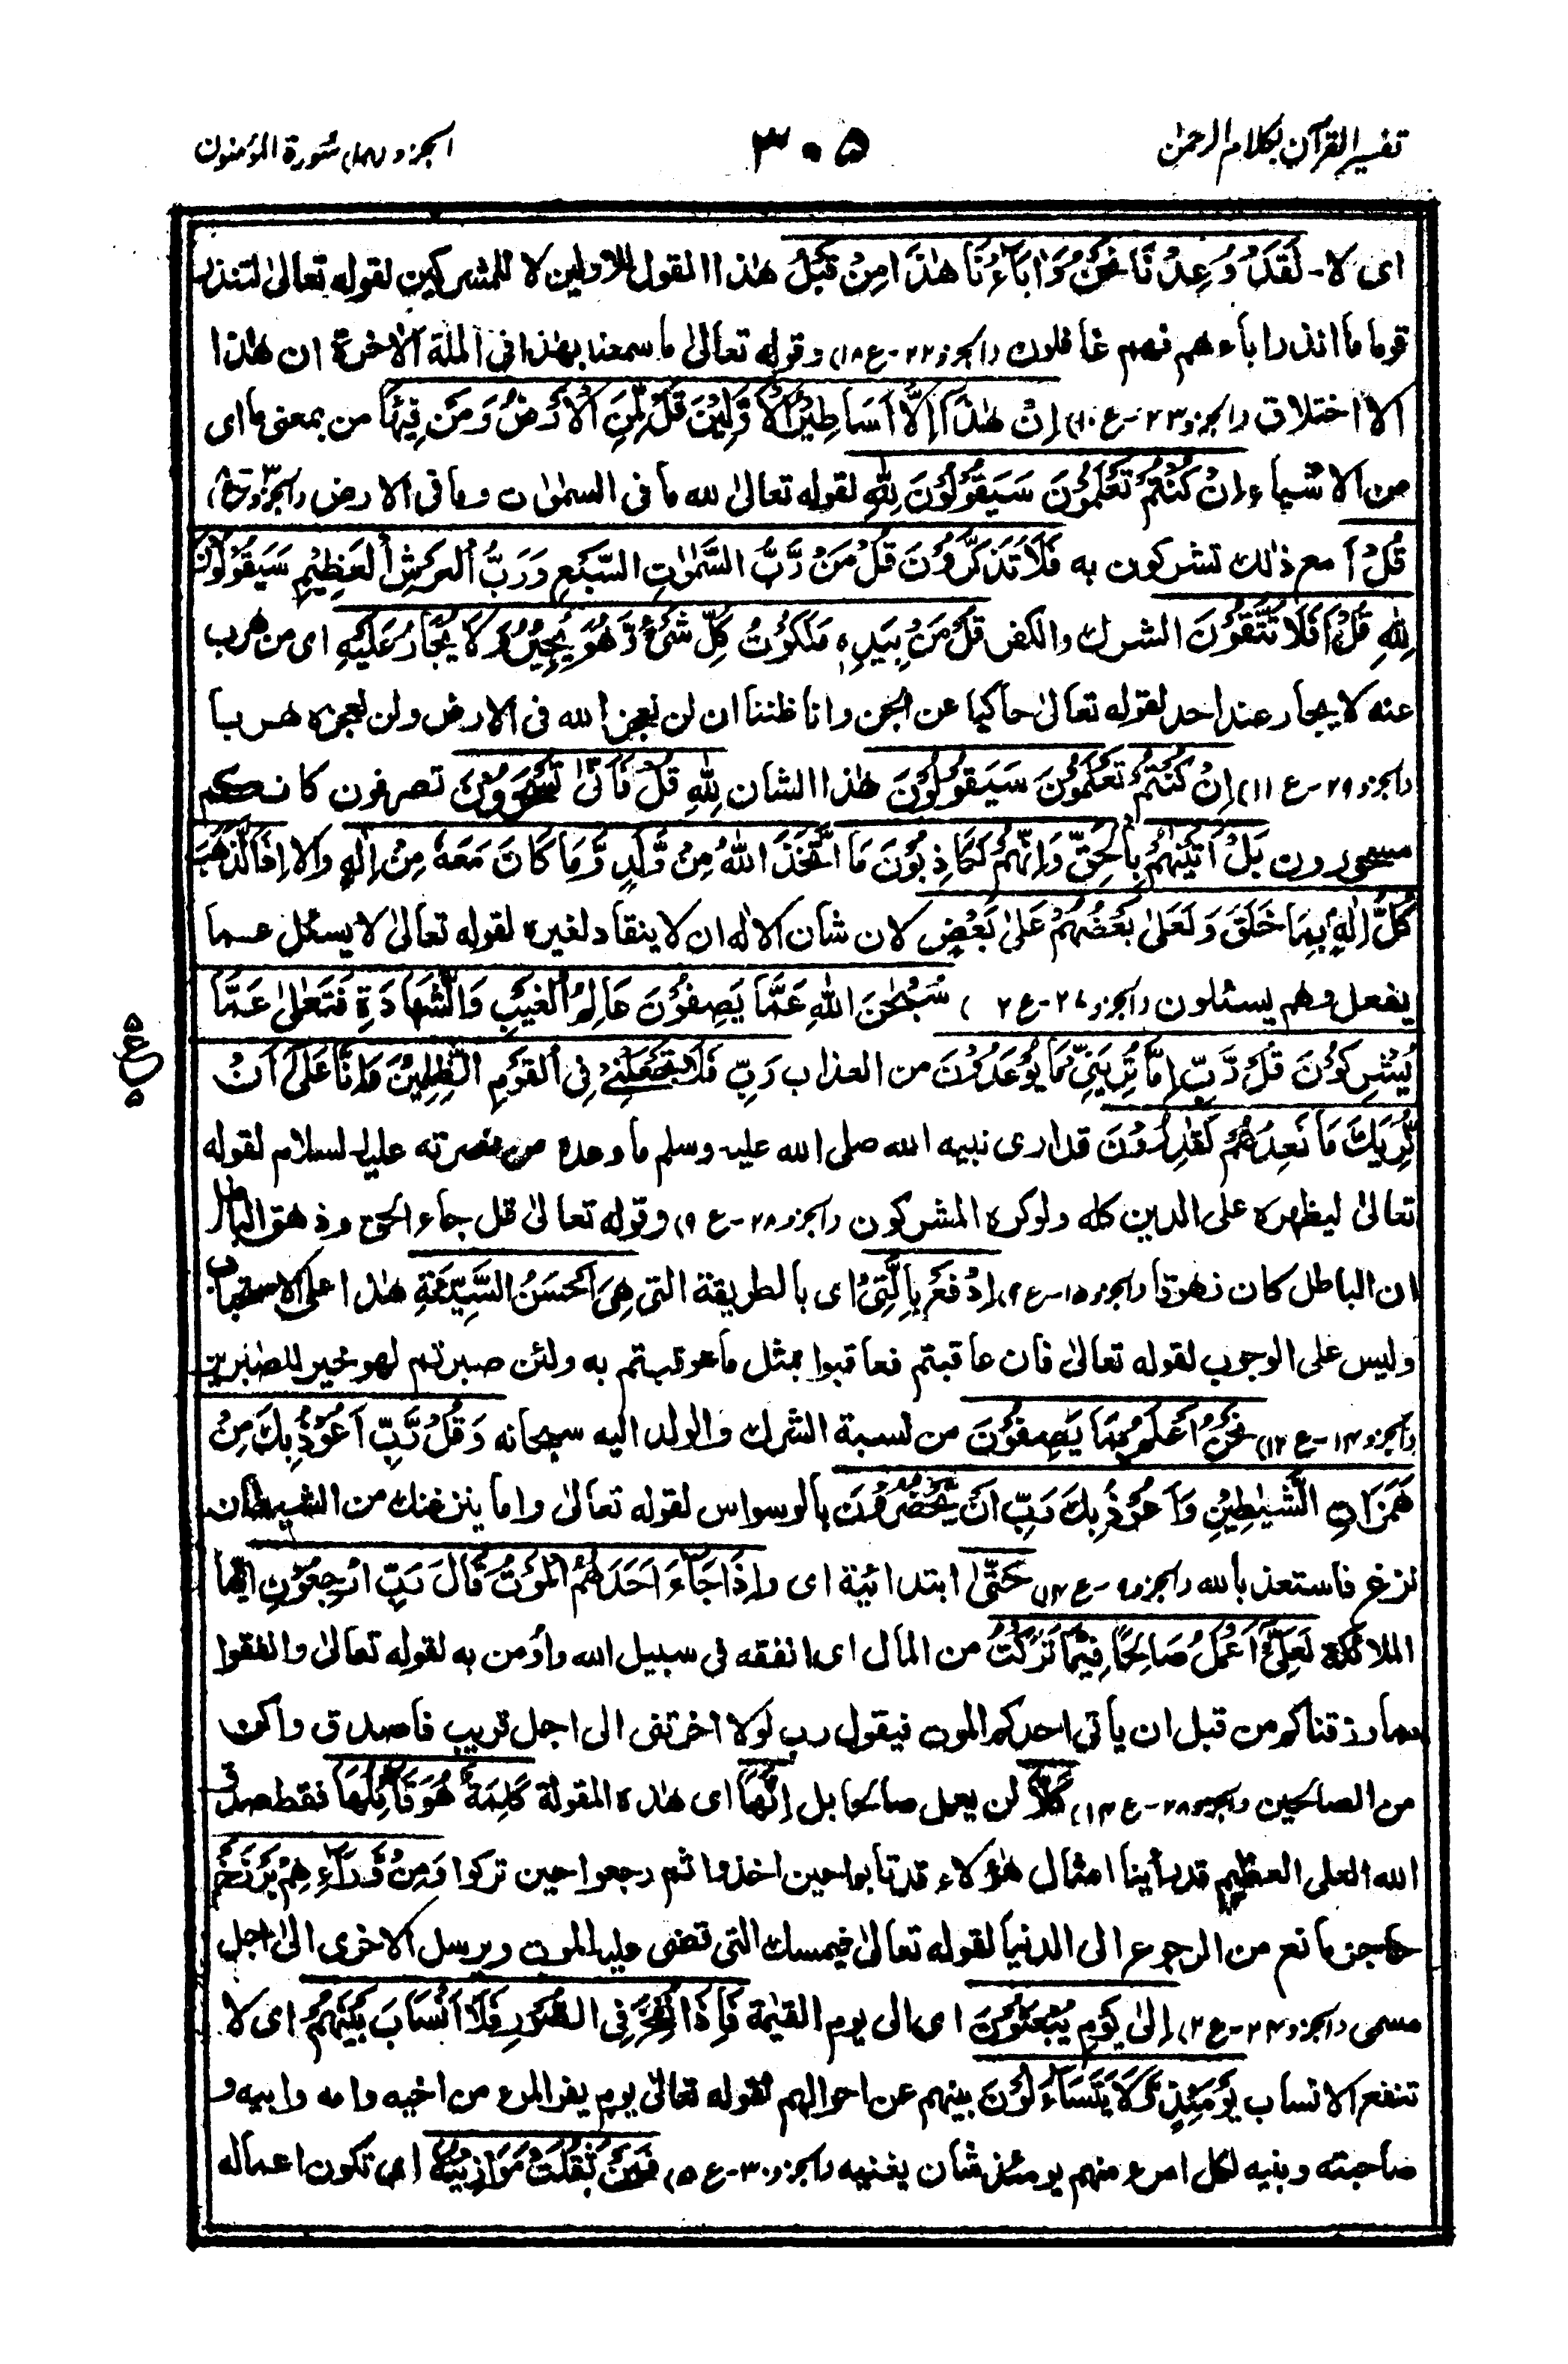 تفسير القرآن بكلام الرحمٰن
٣٠٥
الجزو (١٨) سُورة المؤمنون
اى لا۔ لَقَدْ وُعِدْنَا نَحْنُ وَاٰبَآءُنَا هٰذَا مِنْ قَبْلُ هٰذا القول للاولين لا للمشركين لقوله تعالىٰ لتنذر
قوما ما انذر اٰباءهم فهم غافلون (الجزو٢٢-ع١٨) وقوله تعالىٰ ما سمعنا بهٰذا فى الملة الاٰخرة ان هٰذا
الا اختلاق (الجزو٢٣-ع١٠) اِنْ هٰذَآ اِلَّآ اَسَاطِيْرُ الْاَوَّلِيْنَ قُلْ لِّمَنِ الْاَرْضُ وَمَنْ فِيْهَآ من بمعنى ما اى
من الاشياء اِنْ كُنْتُمْ تَعْلَمُوْنَ سَيَقُوْلُوْنَ لِلّٰهِ لقوله تعالىٰ لله ما فى السمٰوٰت وما فى الارض
قُلْ أ مع ذٰلك تشركون به فَلَا تَذَكَّرُوْنَ قُلْ مَنْ رَّبُّ السَّمٰوٰتِ السَّبْعِ وَرَبُّ الْعَرْشِ الْعَظِيْمِ سَيَقُوْلُوْنَ
لِلّٰهِ قُلْ اَفَلَا تَتَّقُوْنَ الشرك والكفر قُلْ مَنْ بِيَدِهٖ مَلَكُوْتُ كُلِّ شَىْءٍ وَّهُوَ يُجِيْرُ وَلَا يُجَارُ عَلَيْهِ اى من هرب
عنه لا يجار عند احد لقوله تعالىٰ حاكيا عن الجن وانا ظننا ان لن نعجز الله فى الارض ولن نعجزه هربا
(الجزو٢٩-ع١١) اِنْ كُنْتُمْ تَعْلَمُوْنَ سَيَقُوْلُوْنَ هٰذا الشان لِلّٰهِ قُلْ فَاَنّٰى تُسْحَرُوْنَ تصرفون كانكم
مسحورون بَلْ اَتَيْنٰهُمْ بِالْحَقِّ وَاِنَّهُمْ لَكَاذِبُوْنَ مَا اتَّخَذَ اللّٰهُ مِنْ وَّلَدٍ وَّمَا كَانَ مَعَهٗ مِنْ اِلٰهٍ والا اِذًا لَّذَهَبَ
كُلُّ اِلٰهٍ بِمَا خَلَقَ وَلَعَلٰى بَعْضُهُمْ عَلٰى بَعْضٍ لان شان الاله ان لا ينقاد لغيره لقوله تعالىٰ لا يسئل عما
يفعل وهم يسئلون (الجزو١٧-ع٢) سُبْحٰنَ اللّٰهِ عَمَّا يَصِفُوْنَ عَالِمِ الْغَيْبِ وَالشَّهَادَةِ فَتَعٰلىٰ عَمَّا
يُشْرِكُوْنَ قُلْ رَّبِّ اِمَّا تُرِيَنِّىْ مَا يُوْعَدُوْنَ من العذاب رَبِّ فَلَا تَجْعَلْنِىْ فِى الْقَوْمِ الظّٰلِمِيْنَ وَاِنَّا عَلٰٓى اَنْ
نُّرِيَكَ مَا نَعِدُهُمْ لَقٰدِرُوْنَ قد ارى نبيه الله صلى الله عليه وسلم ما وعده من نصرته عليه السلام لقوله
تعالىٰ ليظهره على الدين كله ولو كره المشركون (الجزو٢٨-ع٩) وقوله تعالىٰ قل جاء الحق وزهق الباطل
ان الباطل كان زهوقا (الجزو١٥-ع٩) اِدْفَعْ بِالَّتِىْ اى بالطريقة التى هِىَ اَحْسَنُ السَّيِّئَةَ هٰذا على الاستحباب
وليس على الوجوب لقوله تعالىٰ فان عاقبتم فعاقبوا بمثل ما عوقبتم به ولئن صبرتم لهو خير للصٰبرين
(الجزو١٤-ع١٢) نَحْنُ اَعْلَمُ بِمَا يَصِفُوْنَ من نسبة الشرك والولد اليه سبحانه وَقُلْ رَّبِّ اَعُوْذُ بِكَ مِنْ
هَمَزَاتِ الشَّيٰطِيْنِ وَاَعُوْذُ بِكَ رَبِّ اَنْ يَّحْضُرُوْنِ بالوسواس لقوله تعالىٰ واما ينزغنك من الشيطان
نزغ فاستعذ بالله (الجزو٩-ع١٤) حَتّٰى ابتدائية اى اِذَا جَآءَ اَحَدَهُمُ الْمَوْتُ قَالَ رَبِّ ارْجِعُوْنِ ايها
الملائكة لَعَلِّىْٓ اَعْمَلُ صَالِحًا فِيْمَا تَرَكْتُ من المال اى انفقه فى سبيل الله واُومن به لقوله تعالىٰ وانفقوا
مما رزقناكم من قبل ان ياتى احدكم الموت فيقول رب لولا اخرتنى الى اجل قريب فاصدق واكن
من الصالحين (الجزو٢٨-ع١٤) كَلَّا لن يعمل صالحا بل اِنَّهَا اى هٰذه المقولة كَلِمَةٌ هُوَ قَآئِلُهَا فقط صدق
الله العلى العظيم قد رأينا امثال هٰؤلاء قد تابوا حين اخذوا ثم رجعوا حين تركوا وَمِنْ وَّرَآءِهِمْ بَرْزَخٌ
حاجز مانع من الرجوع الى الدنيا لقوله تعالىٰ فيمسك التى قضى عليها الموت ويرسل الاخرى الىٰ اجل
مسمى (الجزو٢٤-ع٢) اِلىٰ يَوْمِ يُبْعَثُوْنَ اى الى يوم القيٰمة فَاِذَا نُفِخَ فِى الصُّوْرِ فَلَآ اَنْسَابَ بَيْنَهُمْ اى لا
تنفع الانساب يَوْمَئِذٍ وَّلَا يَتَسَآءَلُوْنَ بينهم عن احوالهم لقوله تعالىٰ يوم يفر المرء من اخيه وامه وابيه و
صاحبته وبنيه لكل امرء منهم يومئذ شان يغنيه (الجزو٣٠-ع٥) فَمَنْ ثَقُلَتْ مَوَازِيْنُهٗ اى تكون اعماله